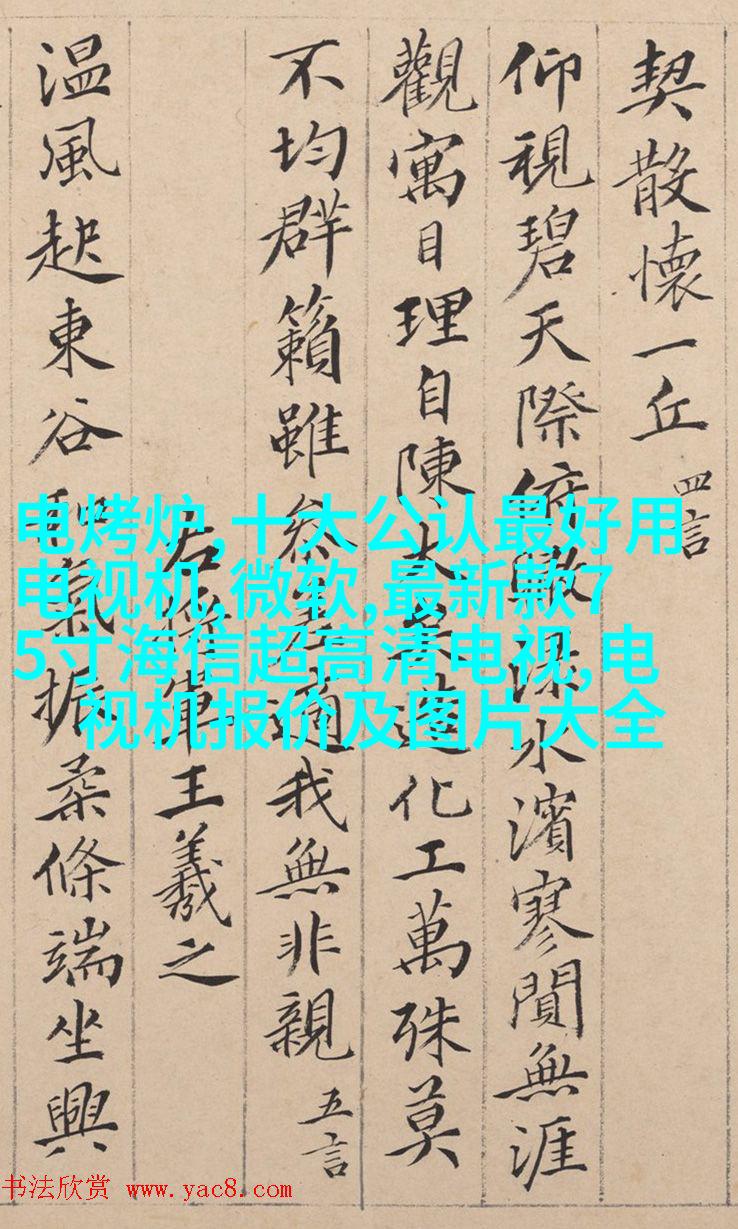 契散懷一丘 四言
仰視碧天際俯瞰淥水濱寥閴無涯
觀寓目理自陳大矣造化工萬殊莫
不均群籟雖參差適我無非親 五言
右將軍王羲之
温風起東谷和氣振柔條端坐興
电烤炉,十大公认最好用
电视机,微软,最新款7
5寸海信超高清电视,电
视机报价及图片大全
书法欣赏 www.yac8.com